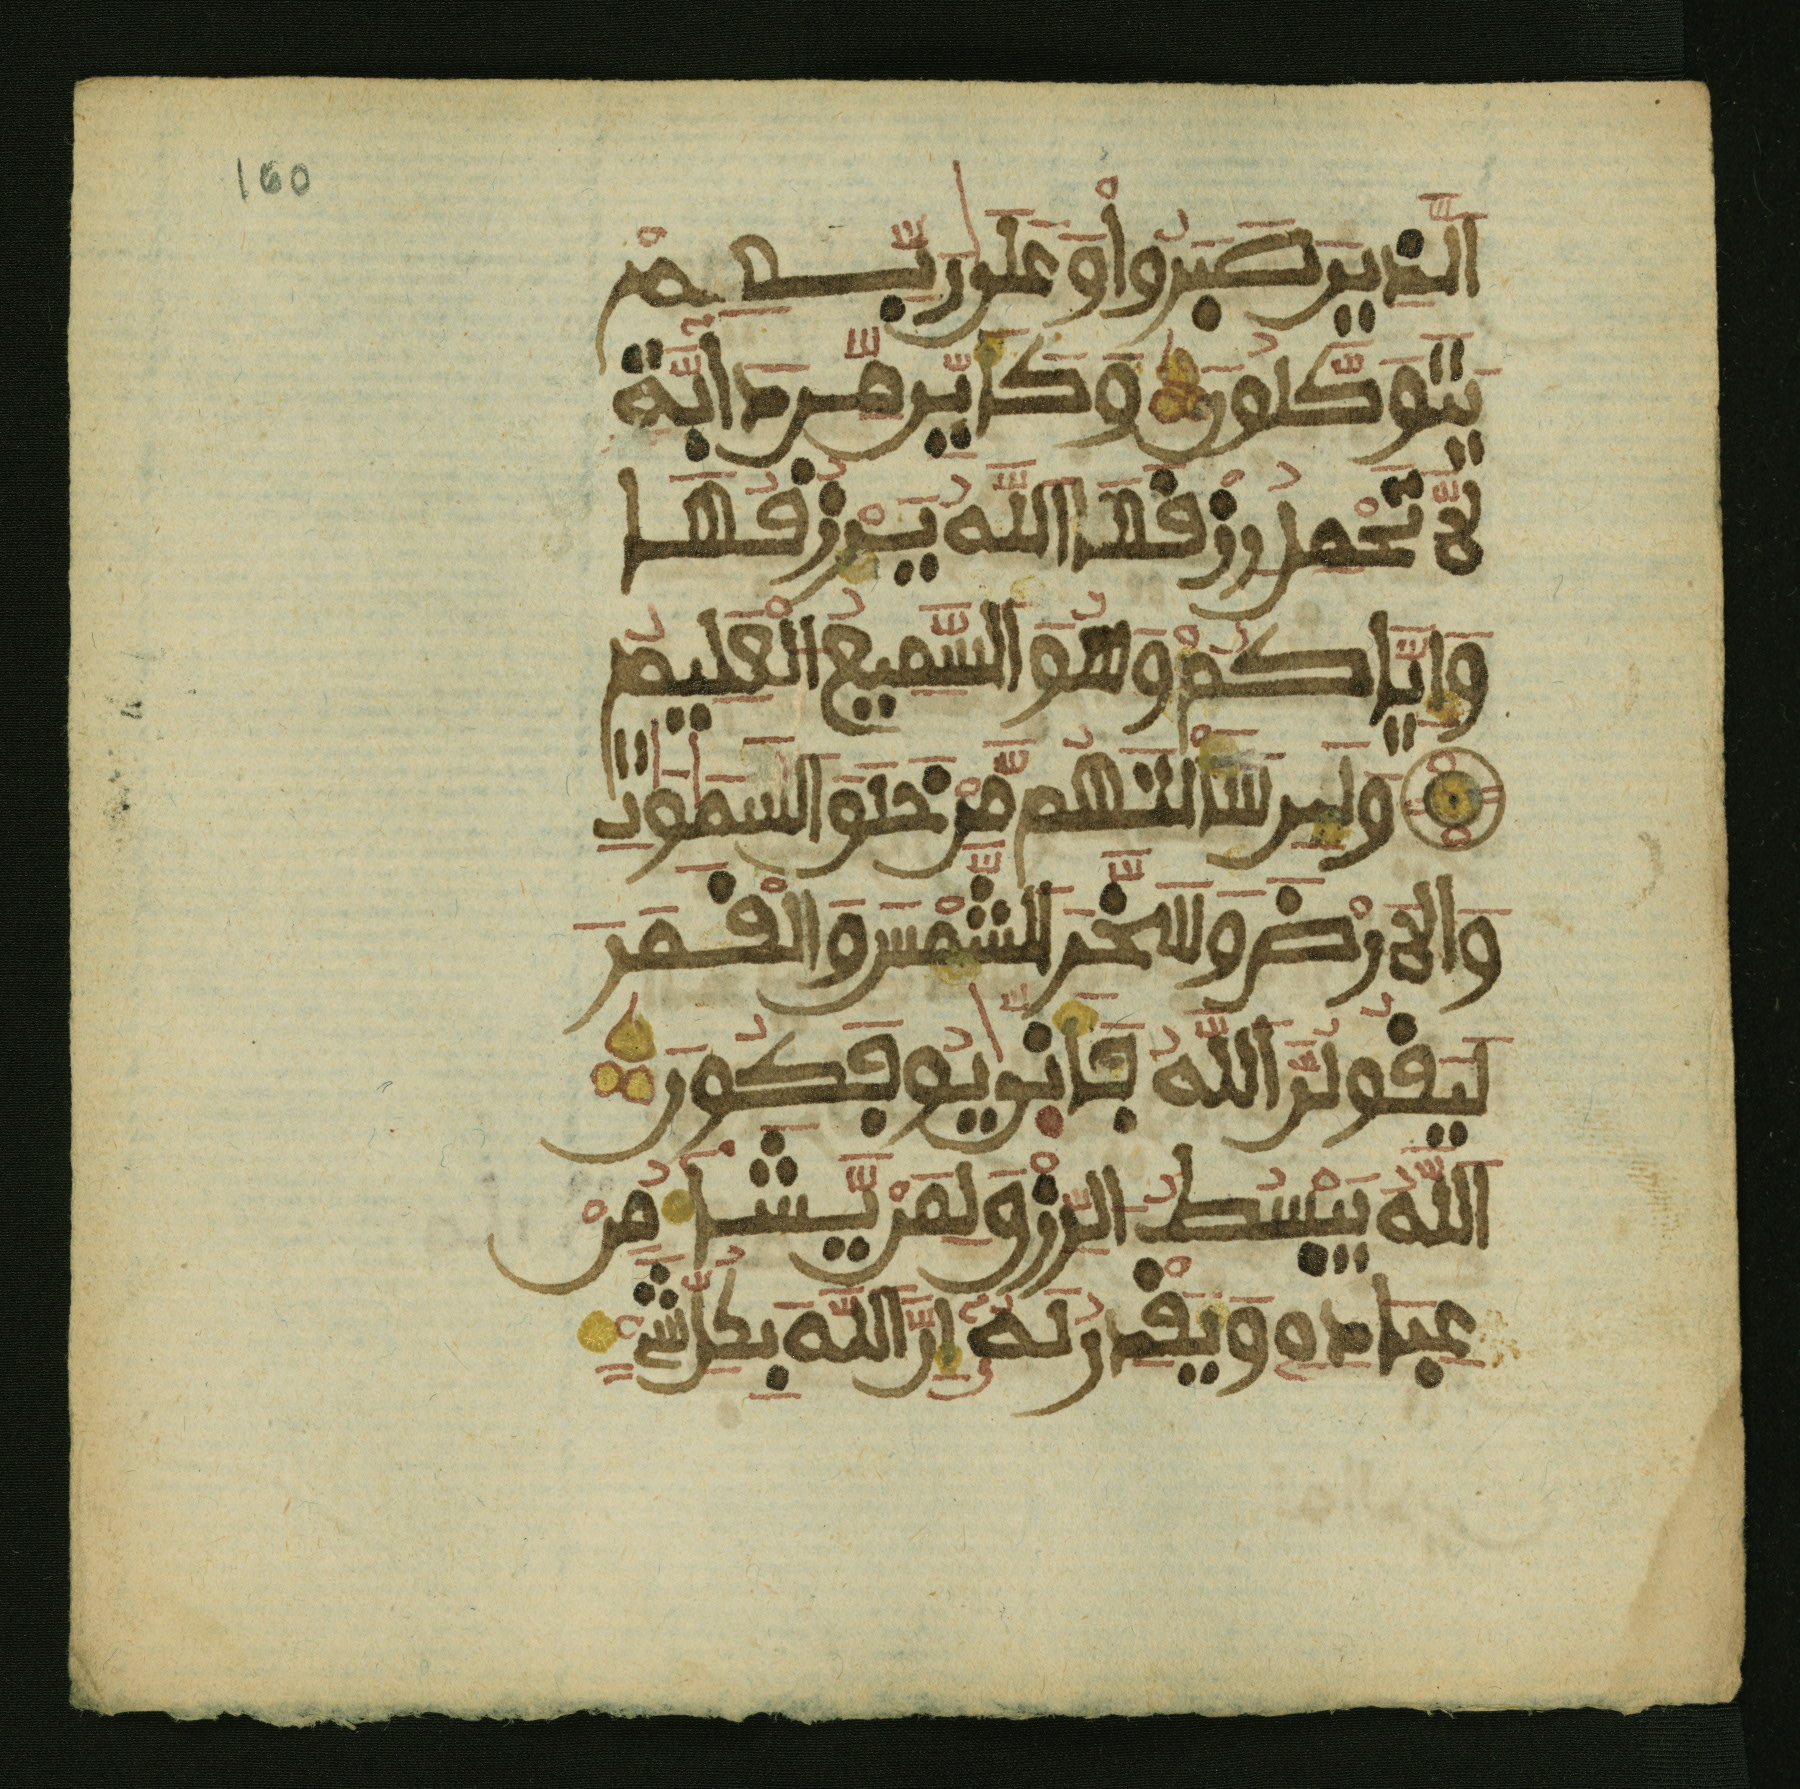 160
الَّذِينَ صَبَرُواْ وَعَلَىٰ رَبِّهِمْ
يَتَوَكَّلُونَ وَكَأَيِّن مِّن دَابَّةٍ
لَّا تَحْمِلُ رِزْقَهَا اللَّهُ يَرْزُقُهَا
وَإِيَّاكُمْ وَهُوَ السَّمِيعُ الْعَلِيمُ
وَلَئِن سَأَلْتَهُم مَّنْ خَلَقَ السَّمَٰوَٰتِ
وَالْأَرْضَ وَسَخَّرَ الشَّمْسَ وَالْقَمَرَ
لَيَقُولُنَّ اللَّهُ فَأَنَّىٰ يُوفَكُونَ
اللَّهُ يَبْسُطُ الرِّزْقَ لِمَنْ يَّشَاءُ مِنْ
عِبَادِهِ وَيَقْدِرُ لَهُ إِنَّ اللَّهَ بِكُلِّ شَيْءٍ